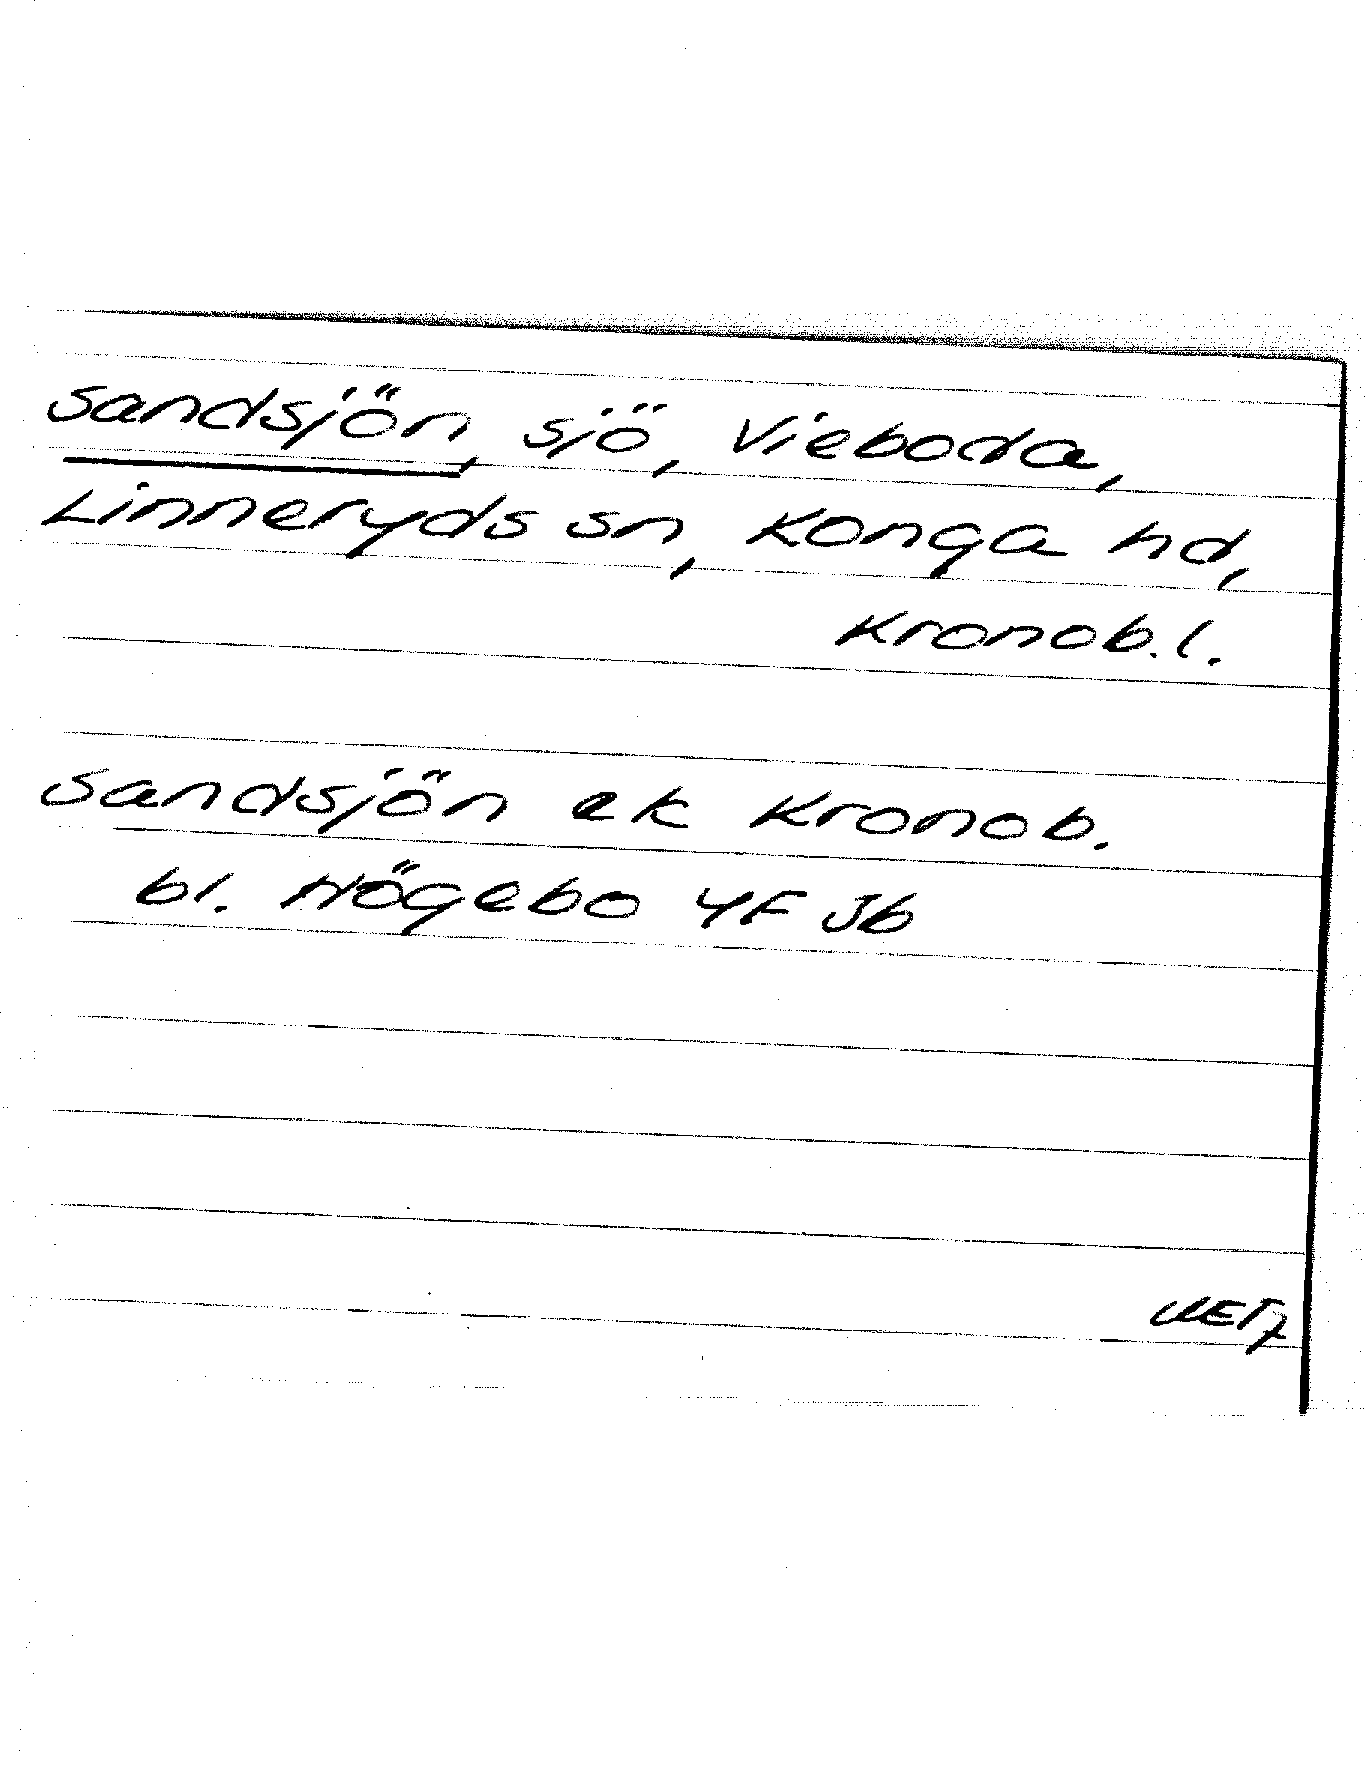 Sandsjön, sjö, Vieboda,
Linneryds sn, Konga hd,
Kronob. l.
Sandsjön ek Kronob.
bl. Högebo 4F Jb